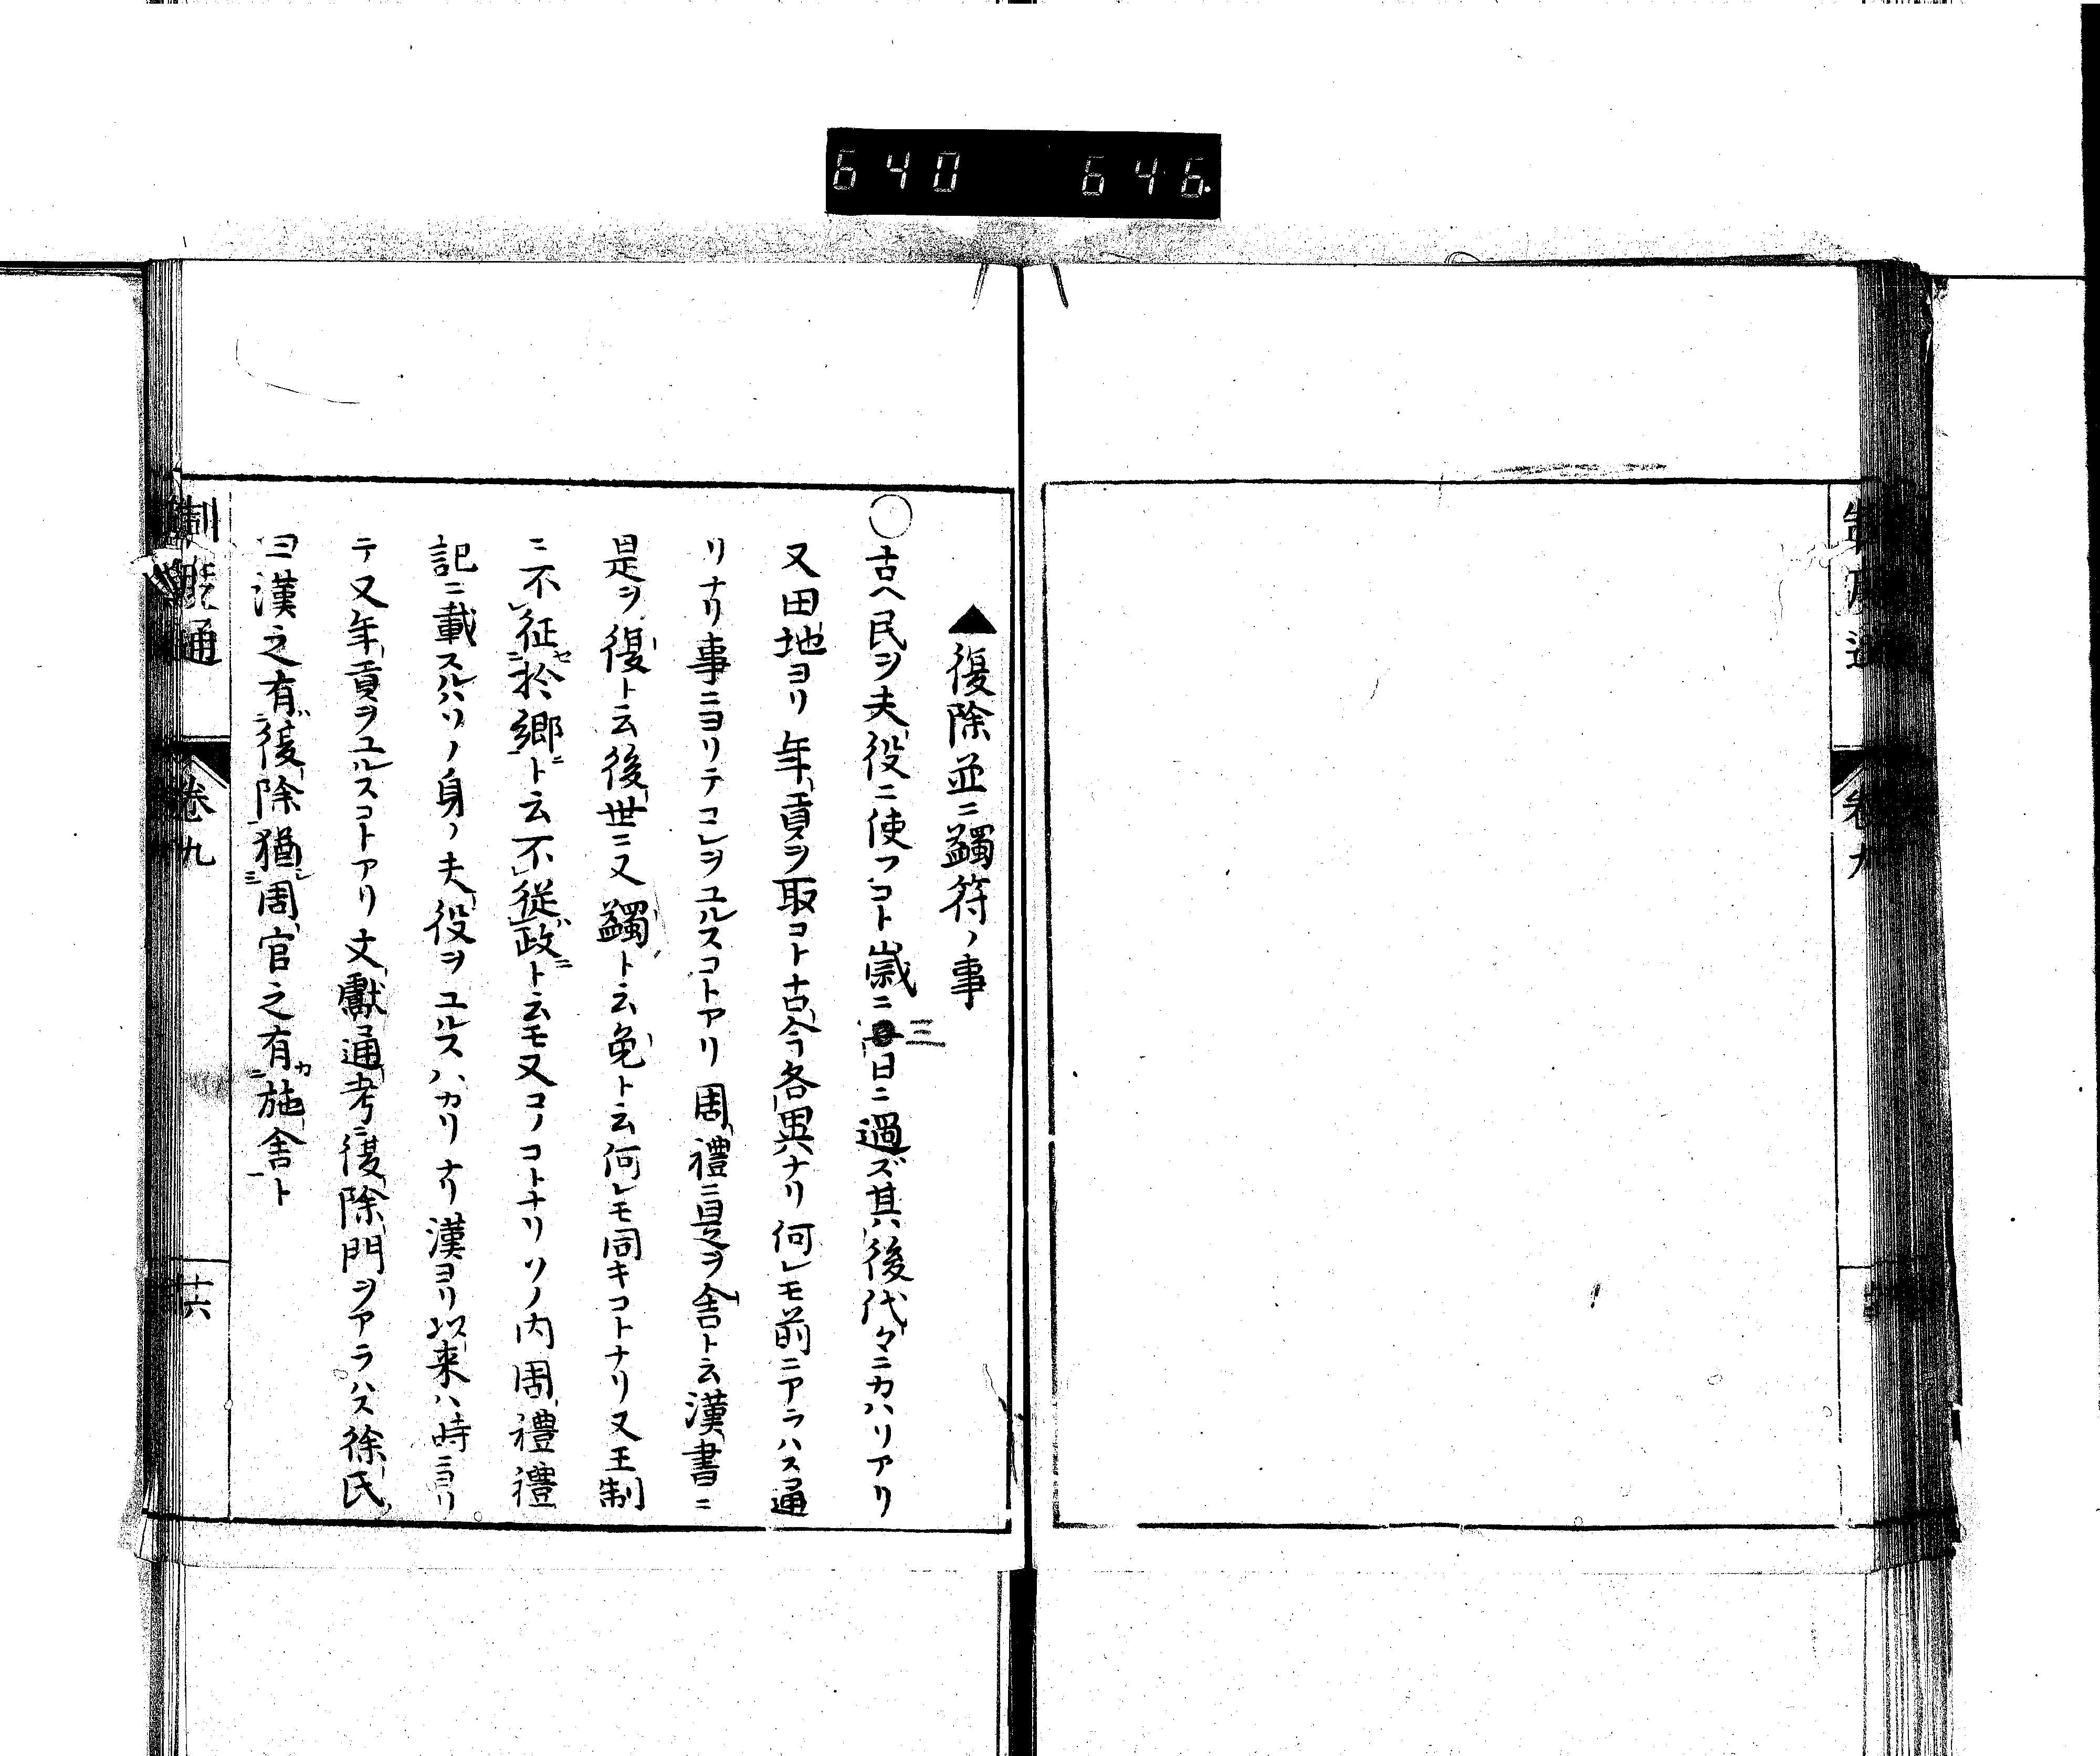 640 646.
▲復除並ニ蠲符ノ事
○古ヘ民ヲ夫役ニ使フコト歳ニ三日ニ過ズ其後代々ニカハリアリ
又田地ヨリ年貢ヲ取コト古今各異ナリ何レモ前ニアラハス通
リナリ事ニヨリテコレヲユルスコトアリ周禮ニ是ヲ舎ト云漢書ニ
是ヲ復ト云後世ニ又蠲ト云免ト云何レモ同キコトナリ又王制
ニ不征於郷ト云不従政ト云モ又コノコトナリソノ内周禮禮
記ニ載スルハソノ身ノ夫役ヲユルスハカリナリ漢ヨリ以来ハ時ニヨリ
テ又年貢ヲユルスコトアリ文獻通考復除門ヲアラハス徐氏
曰漢之有復除猶周官之有施舎ト
制度通
巻九
十六